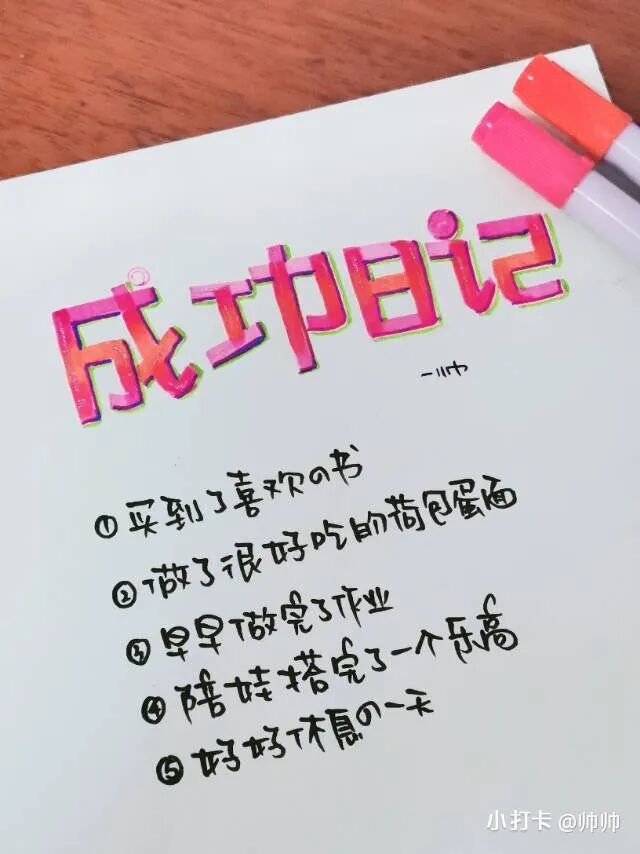 成功日记
一帅
①买到了喜欢の书
②做了很好吃的荷包蛋面
③早早做完了作业
④陪娃搭完了一个乐高
⑤好好休息の一天
小打卡 @帅帅